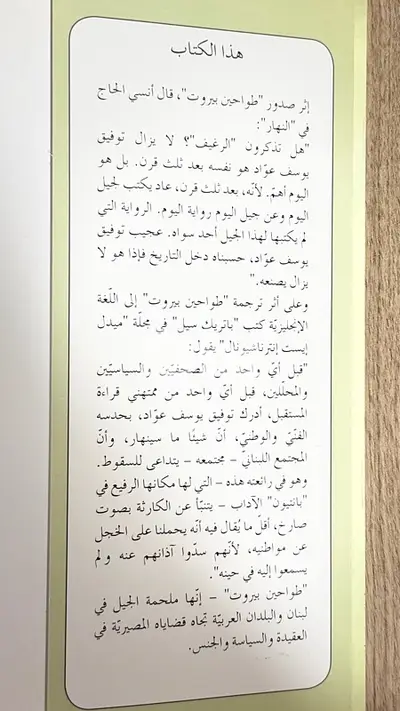 هذا الكتاب
إثر صدور "طواحين بيروت"، قال أنسي الحاج
في "النهار":
"هل تذكرون "الرغيف"؟ لا يزال توفيق
يوسف عوّاد هو نفسه بعد ثلث قرن. بل هو
اليوم أهمّ. لأنّه، بعد ثلث قرن، عاد يكتب لجيل
اليوم وعن جيل اليوم رواية اليوم. الرواية التي
لم يكتبها لهذا الجيل أحد سواه. عجيب توفيق
يوسف عوّاد، حسبناه دخل التاريخ فإذا هو لا
يزال يصنعه."
وعلى أثر ترجمة "طواحين بيروت" إلى اللّغة
الإنجليزيّة كتب "باتريك سيل" في مجلّة "ميدل
إيست إنترناشيونال" يقول:
"قبل أيّ واحد من الصحفيّين والسياسيّين
والمحلّلين، قبل أيّ واحد من ممتهني قراءة
المستقبل، أدرك توفيق يوسف عوّاد، بحدسه
الفنّيّ والوطنيّ، أنّ شيئًا ما سينهار، وأنّ
المجتمع اللبنانيّ – مجتمعه – يتداعى للسقوط.
وهو في رائعته هذه – التي لها مكانها الرفيع في
"بانتيون" الآداب – يتنبّأ عن الكارثة بصوت
صارخ، أقلّ ما يُقال فيه أنّه يحملنا على الخجل
عن مواطنيه، لأنّهم سدّوا آذانهم عنه ولم
يسمعوا إليه في حينه".
"طواحين بيروت" – إنّها ملحمة الجيل في
لبنان والبلدان العربيّة تجاه قضاياه المصيريّة في
العقيدة والسياسة والجنس.